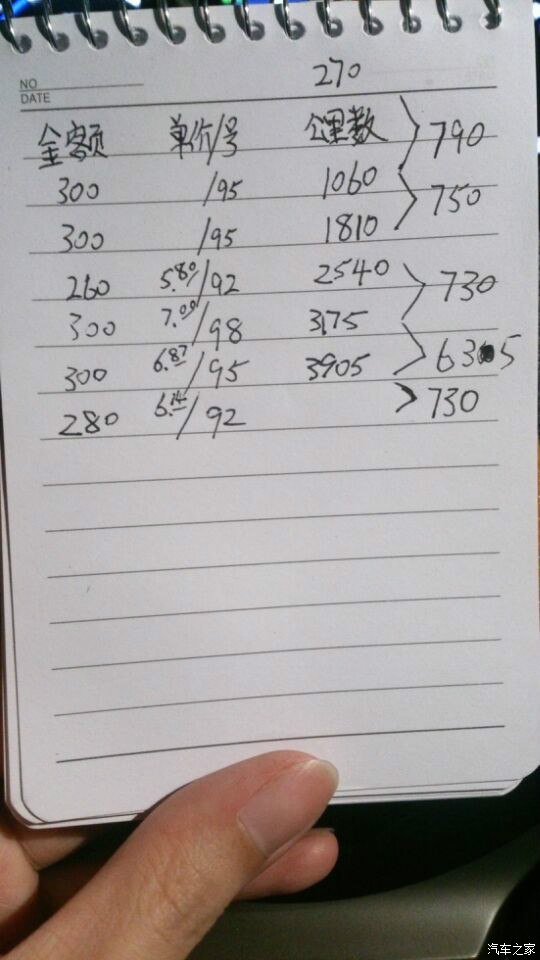 270
NO
DATE
金额 单价/号 公里数 790
300 /95 1060 750
300 /95 1810
260 5.80/92 2540 730
300 7.00/98 3175 6305
300 6.87/95 3905 730
280 6.14/92
汽车之家